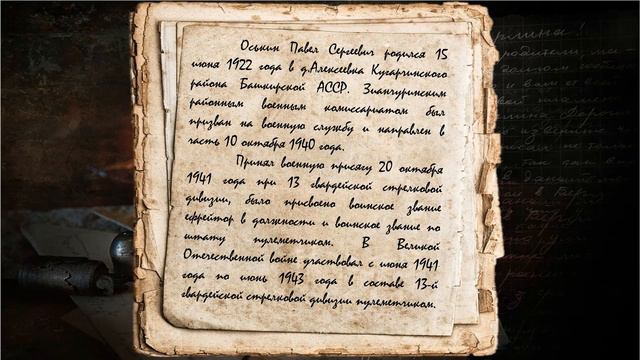 Оськин Павел Сергеевич родился 15
июня 1922 года в д.Алексеевка Кугарчинского
района Башкирской АССР. Зианчуринским
районным военным комиссариатом был
призван на военную службу и направлен в
часть 10 октября 1940 года.
Принял военную присягу 20 октября
1941 года при 13 гвардейской стрелковой
дивизии, было присвоено воинское звание
ефрейтор в должности и воинское звание по
штату пулеметчиком. В Великой
Отечественной войне участвовал с июня 1941
года по июнь 1943 года в составе 13-й
гвардейской стрелковой дивизии пулеметчиком.